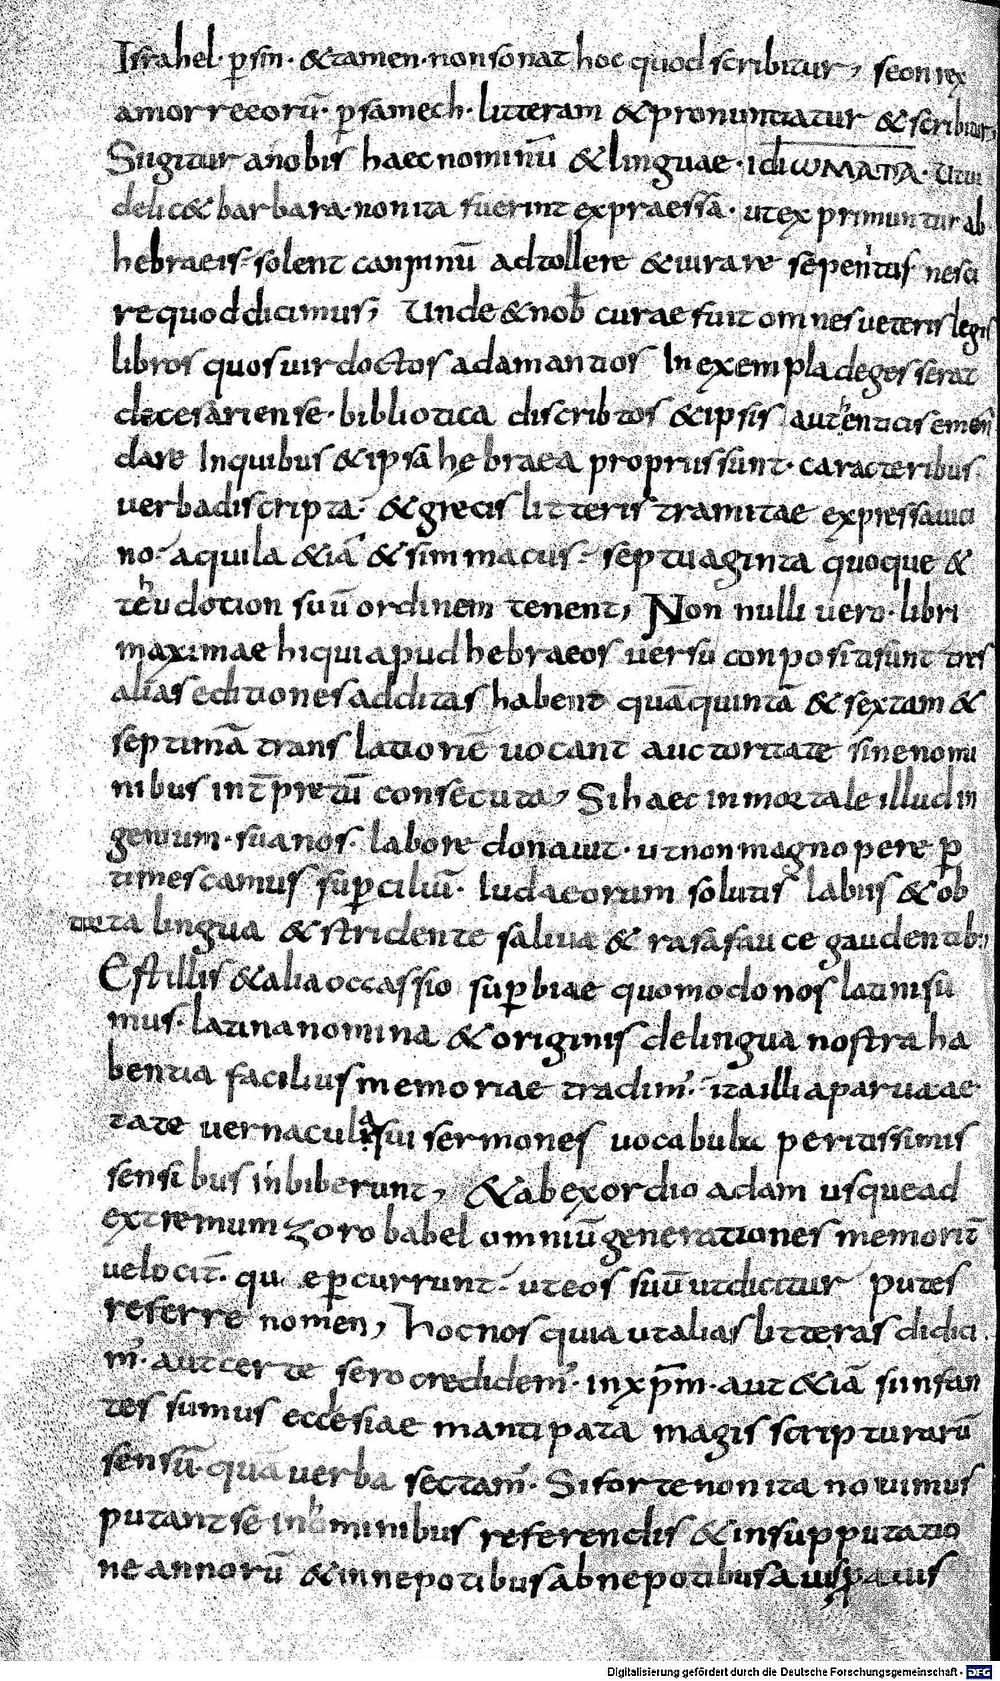 Israhel· ꝑsin· &tamen·nonsonat hoc quod scribitur, seon rex
amorreeorū· ꝑsamech· litteram &pronuntiatur &scribitur,
Siigitur anobis haecnominū &linguae·idiωMATA· Utui
delic& barbara·nonita fuerint expraessa· utexprimuntur ab
hebraeis· solent cachinnū adtollere &iurare sepenitus nesci
requoddicimus, Unde&nob curaefuitomnesueteris legis
libros quosuirdoctos adamantios Inexempladegesserat
decesariense·bibliotica discribtos &ipsis autenticisemen
dare Inquibus &ipsa hebraea propriissunt· caracteribus
uerbadiscripta· &grecis litteris tramitae expressauici
no· aquila &iā &simmacus· septuaginta quoque &
theudotion suūordinem tenent, Non nulli uero·libri
maximae hiquiapudhebraeos uersū conpositisunt tres
alias editionesadditas habent quāquintā &sextam &
septimā translationē uocant auctoritate sinenomi
nibus int̄pretū consecuta, Sihaec inmortale illudin
genium·suanos· labore donauit· utnonmagnopere ꝑ
timescamus suꝑciliū· Iudaeorum solutis labiis &ob
tieta lingua &stridente saliua & rasafauce gaudentib;,
Estillis &aliaoccassio suꝑbiae quomodonos latinisu
mus· latinanomina &originis delingua nostra ha
bentia facilius memoriae tradim'· itailliaparuaae
tate uernaculisui sermones uocabula peritissimis
sensibus inbiberunt, &abexordio adam usquead
extremum zorobabel omniūgenerationes memorit̄
uelocit̄· qu eꝑcurrunt· uteos suūutdicitur putes
referre nomen, hocnos quiautalias litteras didici
m'· autcerte sero credidem'· inxp̄m·aut &iā siinfan
tes sumus ecclesiae mantipata magis scripturarū
sensū·quauerba sectam'· Sifortenonita nouimus
putantse inhominibus referendis &insupputatio
neannorū &innepotibusabnepotibus